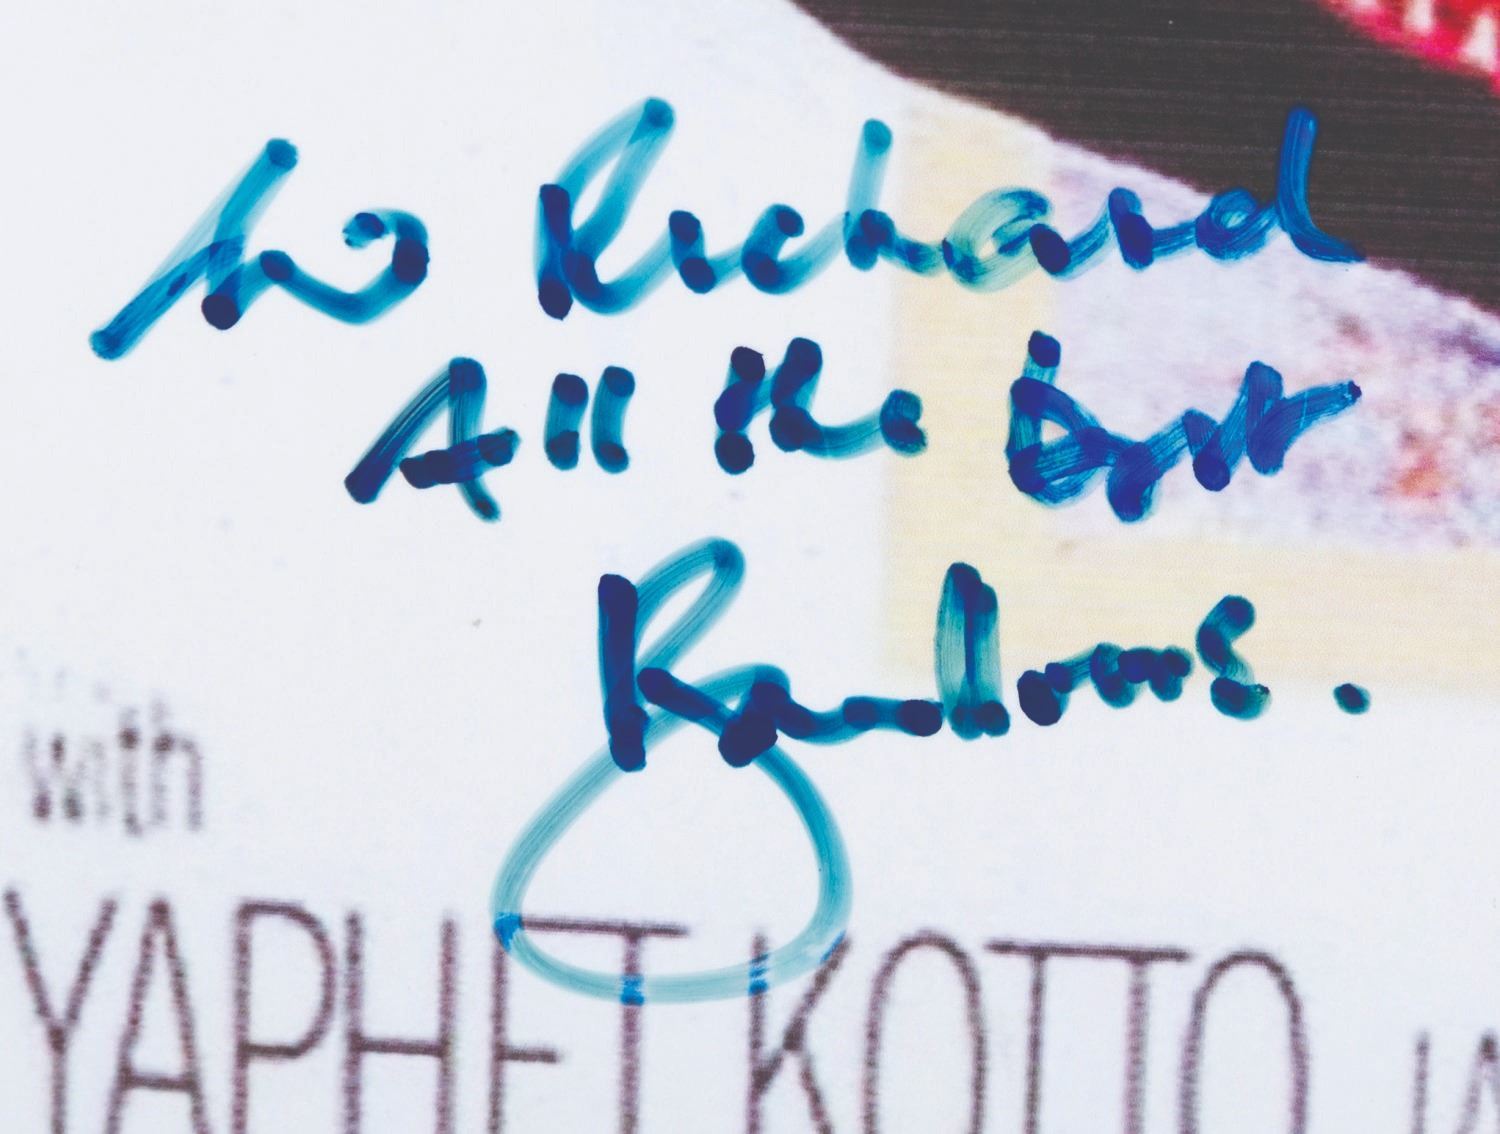 to Richard
All the best
with
YAPHET KOTTO